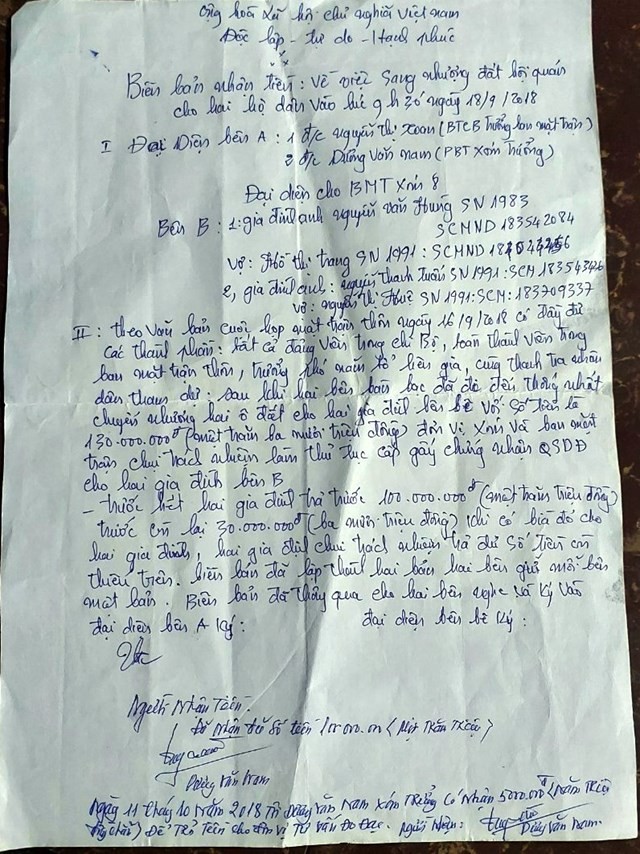 Cộng hoà xã hội chủ nghĩa Việt nam
Độc lập - tự do - Hạnh phúc
Biên bản nhận tiền: về việc sang nhượng đất hội quán
cho hai hộ dân vào lúc 9h 30' ngày 18/9/2018
I Đại Diện bên A: 1 đ/c nguyễn thị Xoan (BTCB trưởng ban mặt trận)
2 đ/c Dương Văn nam (PBT Xóm trưởng)
Đại diện cho BMT Xóm 8
Bên B: 1: gia đình anh nguyễn văn Hưng SN 1983
SCMND 183542084
vợ: Hồ thị trang SN 1991: SCMND
2, gia đình anh: nguyễn thanh tuấn SN 1991: SCM: 183543426
vợ: nguyễn thị Huệ SN 1991: SCM: 183709337
II: theo văn bản cuộc họp mặt trận thôn ngày 16/9/2018 có đầy đủ
các thành phần: tất cả đảng viên trong chi Bộ, toàn thành viên trong
ban mặt trận thôn, trưởng phó năm tổ liên gia, cùng thanh tra nhân
dân tham dự: sau khi hai bên bàn bạc đã đi đến thống nhất
chuyển nhượng hai ô đất cho hai gia đình bên bê với số tiền là
130.000.000đ (một trăm ba mươi triệu đồng) đơn vị xóm và ban mặt
trận chịu trách nhiệm làm thủ tục cấp giấy chứng nhận QSDĐ
cho hai gia đình bên B
- trước hết hai gia đình trả trước 100.000.000đ (một trăm triệu đồng)
trước còn lại 30.000.000đ (ba mươi triệu đồng) khi có bìa đỏ cho
hai gia đình, hai gia đình chịu trách nhiệm trả đủ số tiền còn
thiếu trên. biên bản đã lập thành hai bản hai bên giữ mỗi bên
một bản. Biên bản đã thông qua cho hai bên nghe và ký vào
đại diện bên A ký: đại diện bên bê ký:
Người Nhận Tiền:
Đã Nhận đủ số tiền 100.000.00 (Một Trăm Triệu)
Dương Văn Nam
Ngày 11 tháng 10 năm 2018 Tôi Dương Văn Nam xóm Trưởng có Nhận 5000.000đ (Năm Triệu
) Để Trả Tiền cho đơn vị Tư vấn Đo Đạc. Người Nhận: Dương Văn Nam.